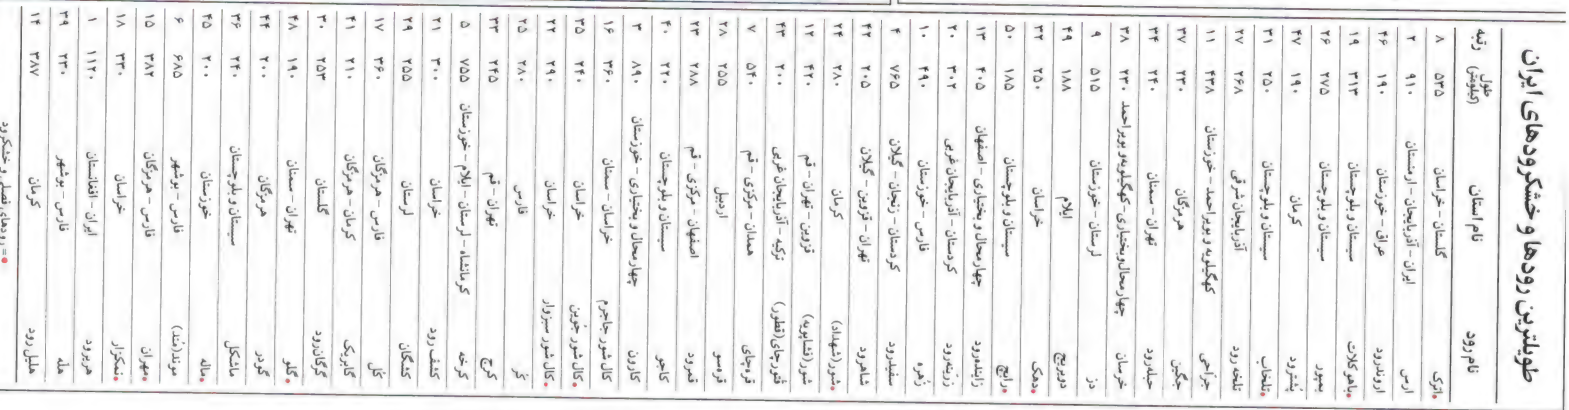 طویلترین رودها و خشکرودهای ایران
نام رود نام استان طول (کیلومتر) رتبه
*اترک گلستان - خراسان ۵۳۵ ۸
ارس ایران - آذربایجان - ارمنستان ۹۱۰ ۲
اروندرود عراق - خوزستان ۱۹۰ ۴۶
*باهوکلات سیستان و بلوچستان ۳۱۳ ۱۹
بمپور سیستان و بلوچستان ۲۷۵ ۲۶
پُشترود کرمان ۱۹۰ ۴۷
*تلخاب سیستان و بلوچستان ۲۵۰ ۳۱
تلخه‌رود آذربایجان شرقی ۲۶۸ ۲۷
جرّاحی کهگیلویه و بویراحمد - خوزستان ۴۳۸ ۱۱
جگین هرمزگان ۲۳۰ ۳۷
حبله‌رود تهران - سمنان ۲۴۰ ۳۴
خرسان چهارمحال‌وبختیاری-کهگیلویه‌و بویراحمد ۲۳۰ ۳۸
دز لرستان - خوزستان ۵۱۵ ۹
دویریج ایلام ۱۸۸ ۴۹
*دهک خراسان ۲۵۰ ۳۲
*رابج سیستان و بلوچستان ۱۸۵ ۵۰
زاینده‌رود چهارمحال و بختیاری - اصفهان ۴۰۵ ۱۳
زرّینه‌رود کردستان - آذربایجان غربی ۳۰۲ ۲۰
زُهره فارس - خوزستان ۴۹۰ ۱۰
سفیدرود کردستان - زنجان - گیلان ۷۶۵ ۴
شاهرود تهران - قزوین - گیلان ۲۰۵ ۴۲
*شور(شهداد) کرمان ۲۸۰ ۲۴
شور(فشاپویه) قزوین - تهران - قم ۴۲۰ ۱۲
قتورچای(قطور) ترکیه - آذربایجان غربی ۲۰۰ ۴۳
قره‌چای همدان - مرکزی - قم ۵۴۰ ۷
قره‌سو اردبیل ۲۵۵ ۲۸
قمرود اصفهان - مرکزی - قم ۲۸۸ ۲۳
کاجو سیستان و بلوچستان ۲۲۰ ۴۰
کارون چهارمحال و بختیاری - خوزستان ۸۹۰ ۳
کال شور جاجرم خراسان - سمنان ۳۶۰ ۱۶
*کال شور جُوین خراسان ۲۴۰ ۳۵
*کال شور سبزوار خراسان ۲۹۰ ۲۲
کُر فارس ۲۸۰ ۲۵
کرج تهران - قم ۲۴۵ ۳۳
کرخه کرمانشاه - لرستان - ایلام - خوزستان ۷۵۵ ۵
کشف رود خراسان ۳۰۰ ۲۱
کشکان لرستان ۲۵۵ ۲۹
کل فارس - هرمزگان ۳۶۰ ۱۷
گابریک کرمان - هرمزگان ۲۱۰ ۴۱
گرگان‌رود گلستان ۲۵۳ ۳۰
*گلو تهران - سمنان ۱۹۰ ۴۸
گودر هرمزگان ۲۰۰ ۴۴
ماشکل سیستان و بلوچستان ۲۴۰ ۳۶
*ماله خوزستان ۲۰۰ ۴۵
موند(مُند) فارس - بوشهر ۶۸۵ ۶
*مهران فارس - هرمزگان ۳۸۲ ۱۵
*نمکزار خراسان ۳۳۰ ۱۸
هریرود ایران - افغانستان ۱۱۲۰ ۱
هله فارس - بوشهر ۲۳۰ ۳۹
هلیل رود کرمان ۳۸۷ ۱۴
* = رودهای فصلی و خشکرود